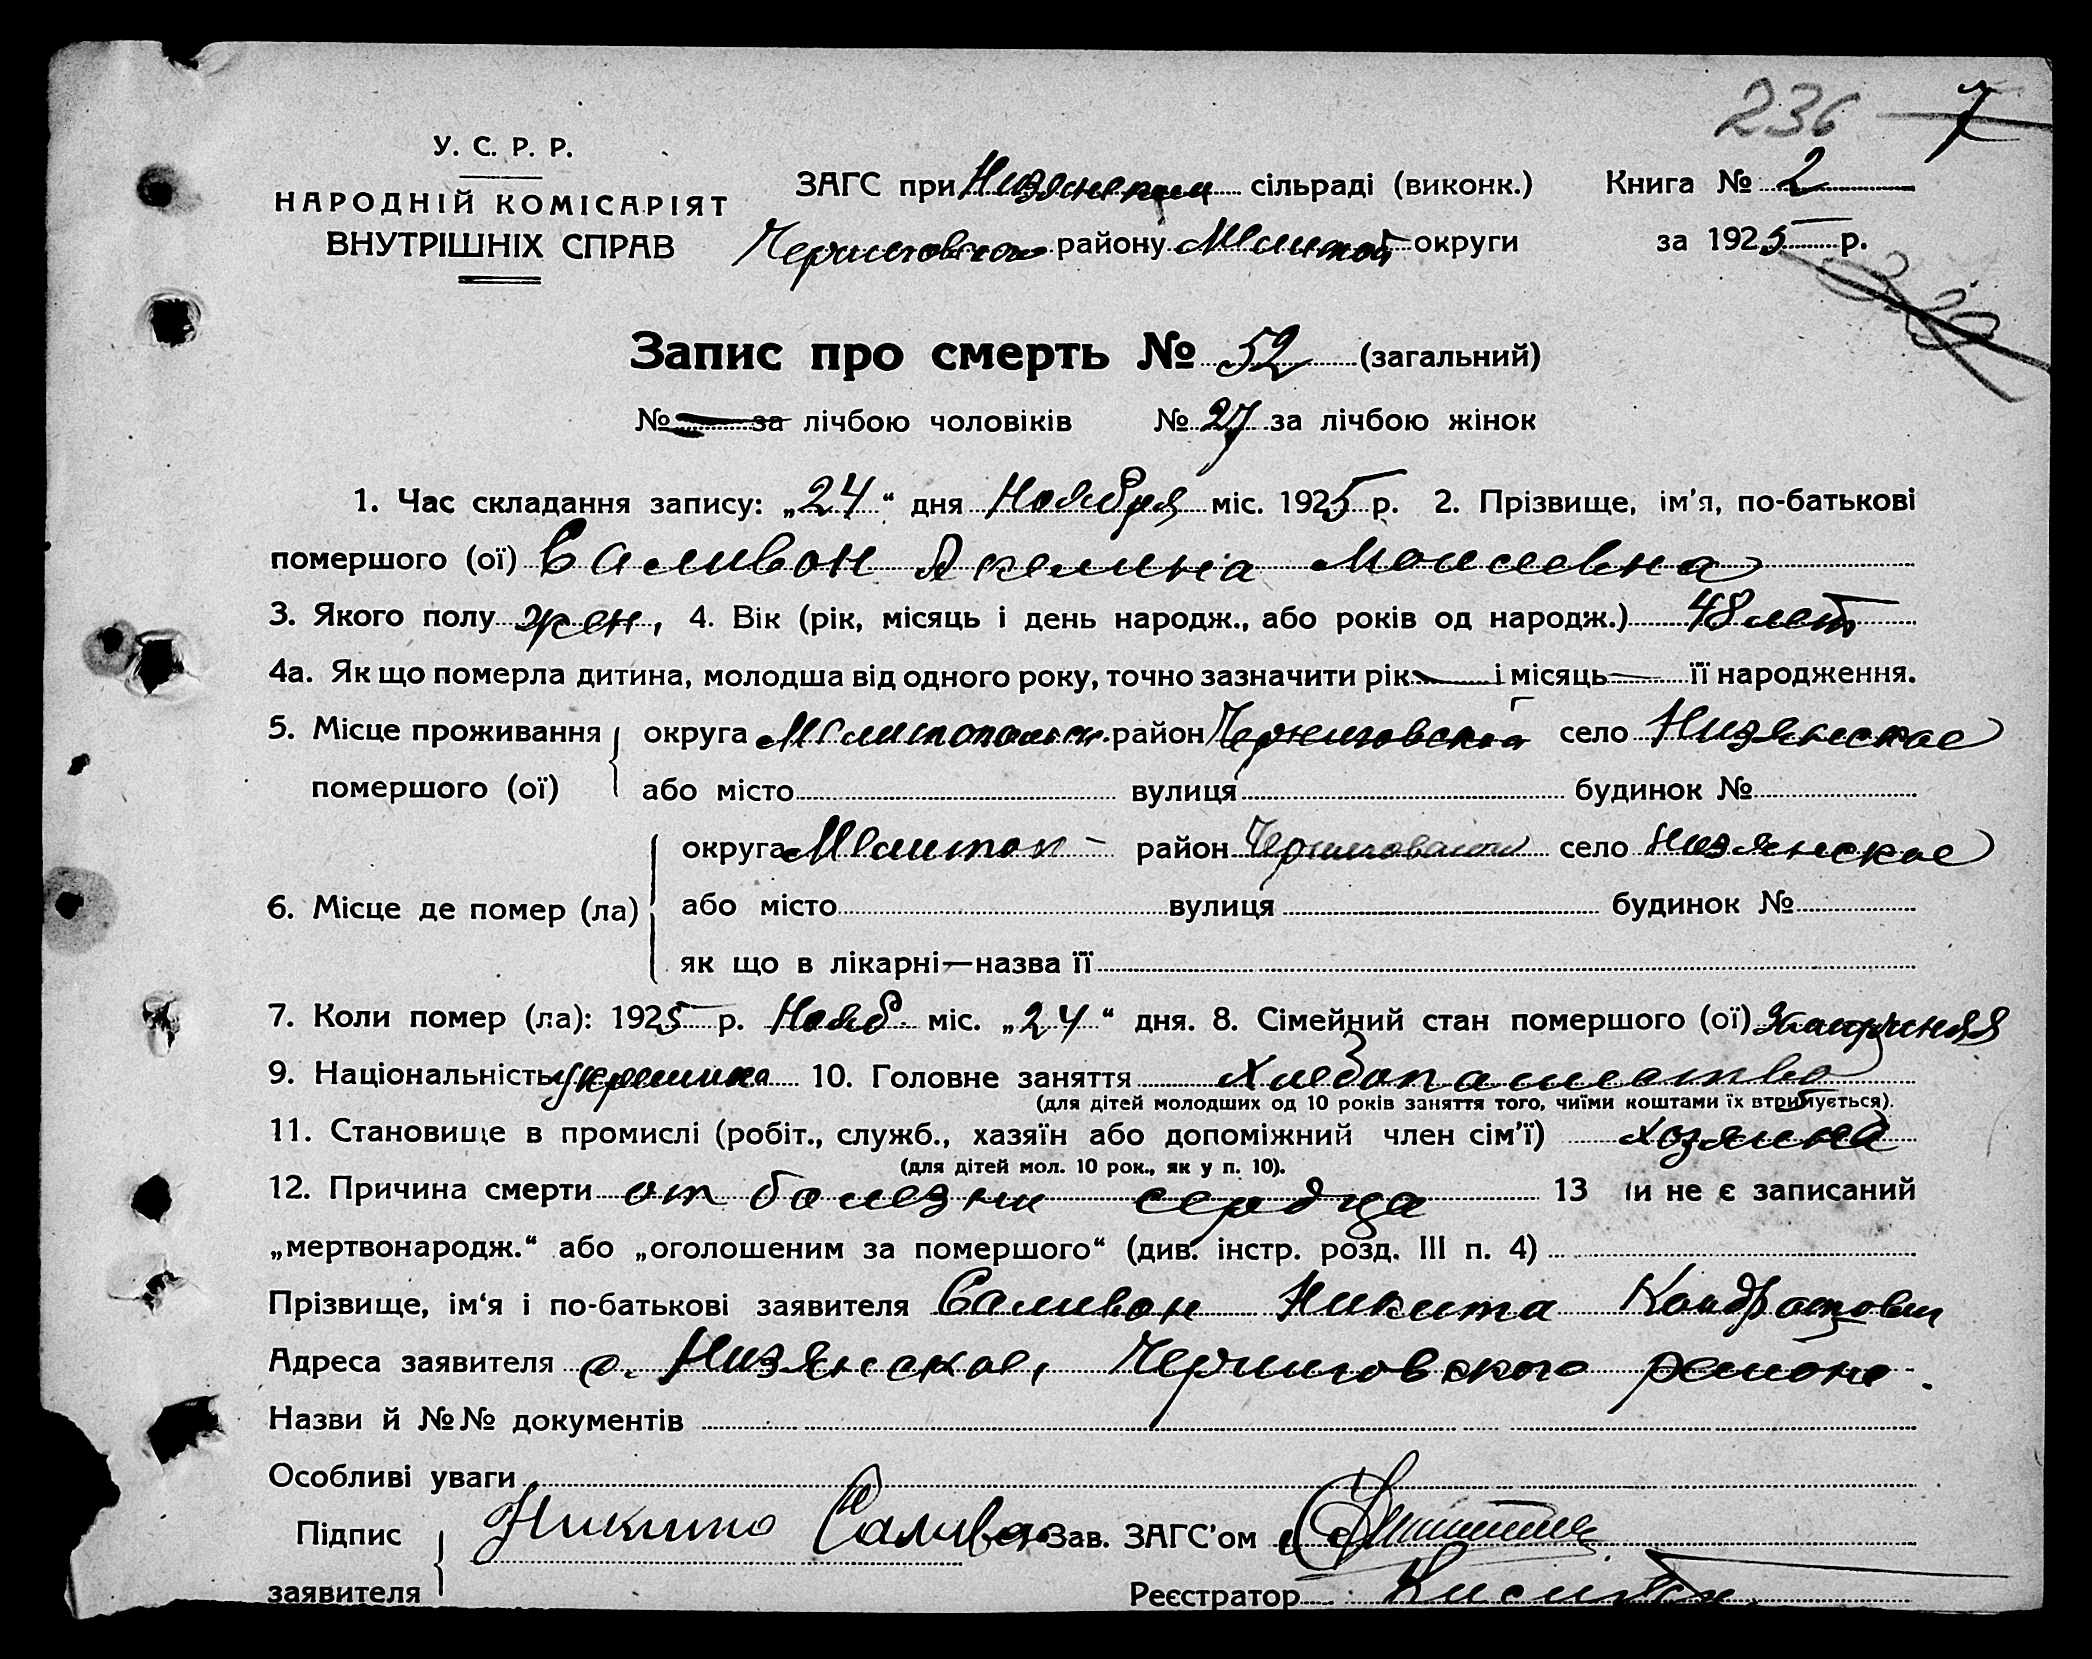 236 7
У. С. Р. Р.
НАРОДНІЙ КОМІСАРІЯТ
ВНУТРІШНІХ СПРАВ
ЗАГС при Низянском сільраді (виконк.) Книга № 2
Черниговского району Мелитоп округи за 1925 р.
Запис про смерть № 52 (загальний)
№ за лічбою чоловіків № 27 за лічбою жінок
1. Час складання запису: „24“ дня Ноября міс. 1925 р. 2. Прізвище, ім'я, по-батькові
помершого (ої) Саливон Акелина Моисеевна
3. Якого полу жен. 4. Вік (рік, місяць і день народж., або років од народж.) 48 лет
4а. Як що померла дитина, молодша від одного року, точно зазначити рік — і місяць — її народження.
5. Місце проживання округа Мелитопольск. район Черниговский село Низянское
помершого (ої) або місто вулиця будинок №
округа Мелитоп- район Черниговский село Низянское
6. Місце де помер (ла) або місто вулиця будинок №
як що в лікарні—назва її
7. Коли помер (ла): 1925 р. Нояб. міс. „24“ дня. 8. Сімейний стан помершого (ої) замужняя
9. Національність украинка 10. Головне заняття хлебопашество
(для дітей молодших од 10 років заняття того, чиїми коштами їх втримується).
11. Становище в промислі (робіт., служб., хазяїн або допоміжний член сім'ї) хозяйка
(для дітей мол. 10 рок., як у п. 10).
12. Причина смерти от болезни сердца 13 и не є записаний
„мертвонародж.“ або „оголошеним за помершого“ (див. інстр. розд. III п. 4)
Прізвище, ім'я і по-батькові заявителя Саливон Никита Кондратович
Адреса заявителя с. Низянское, Черниговского района.
Назви й №№ документів
Особливі уваги
Підпис Никита Саливон Зав. ЗАГС'ом
заявителя Реєстратор